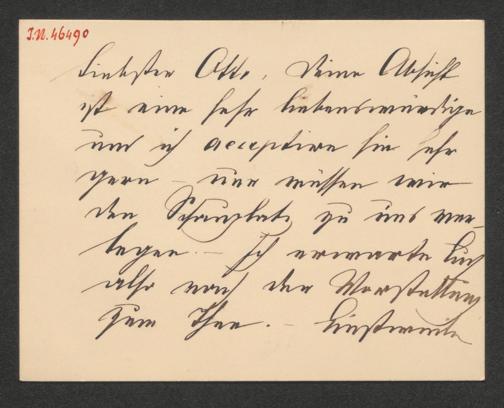 I.N. 46490
Liebster Otto, Deine Absicht
ist eine sehr liebenswürdige
und ich acceptire sie sehr
gern – nur müssen wir
den Schauplatz zu uns ver-
legen. – Ich erwarte Euch
also nach der Vorstellung
zum Thee. – Einstweilen